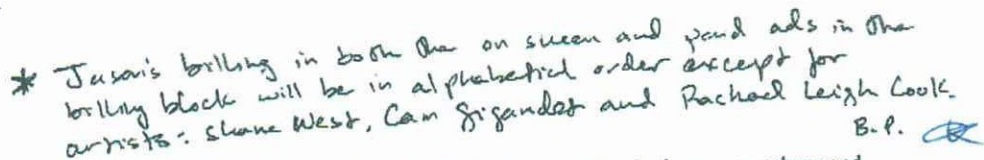 * Jason's billing in both the on screen and paid ads in the
billing block will be in alphabetical order except for
artists: Shane West, Cam Gigandet and Rachael Leigh Cook.
B.P.